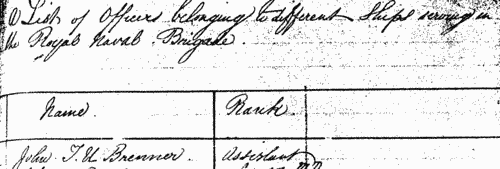 A List of Officers belonging to different Ships serving in
the Royal Naval Brigade.
Name. Rank.
John T. U Brenner. Assistant